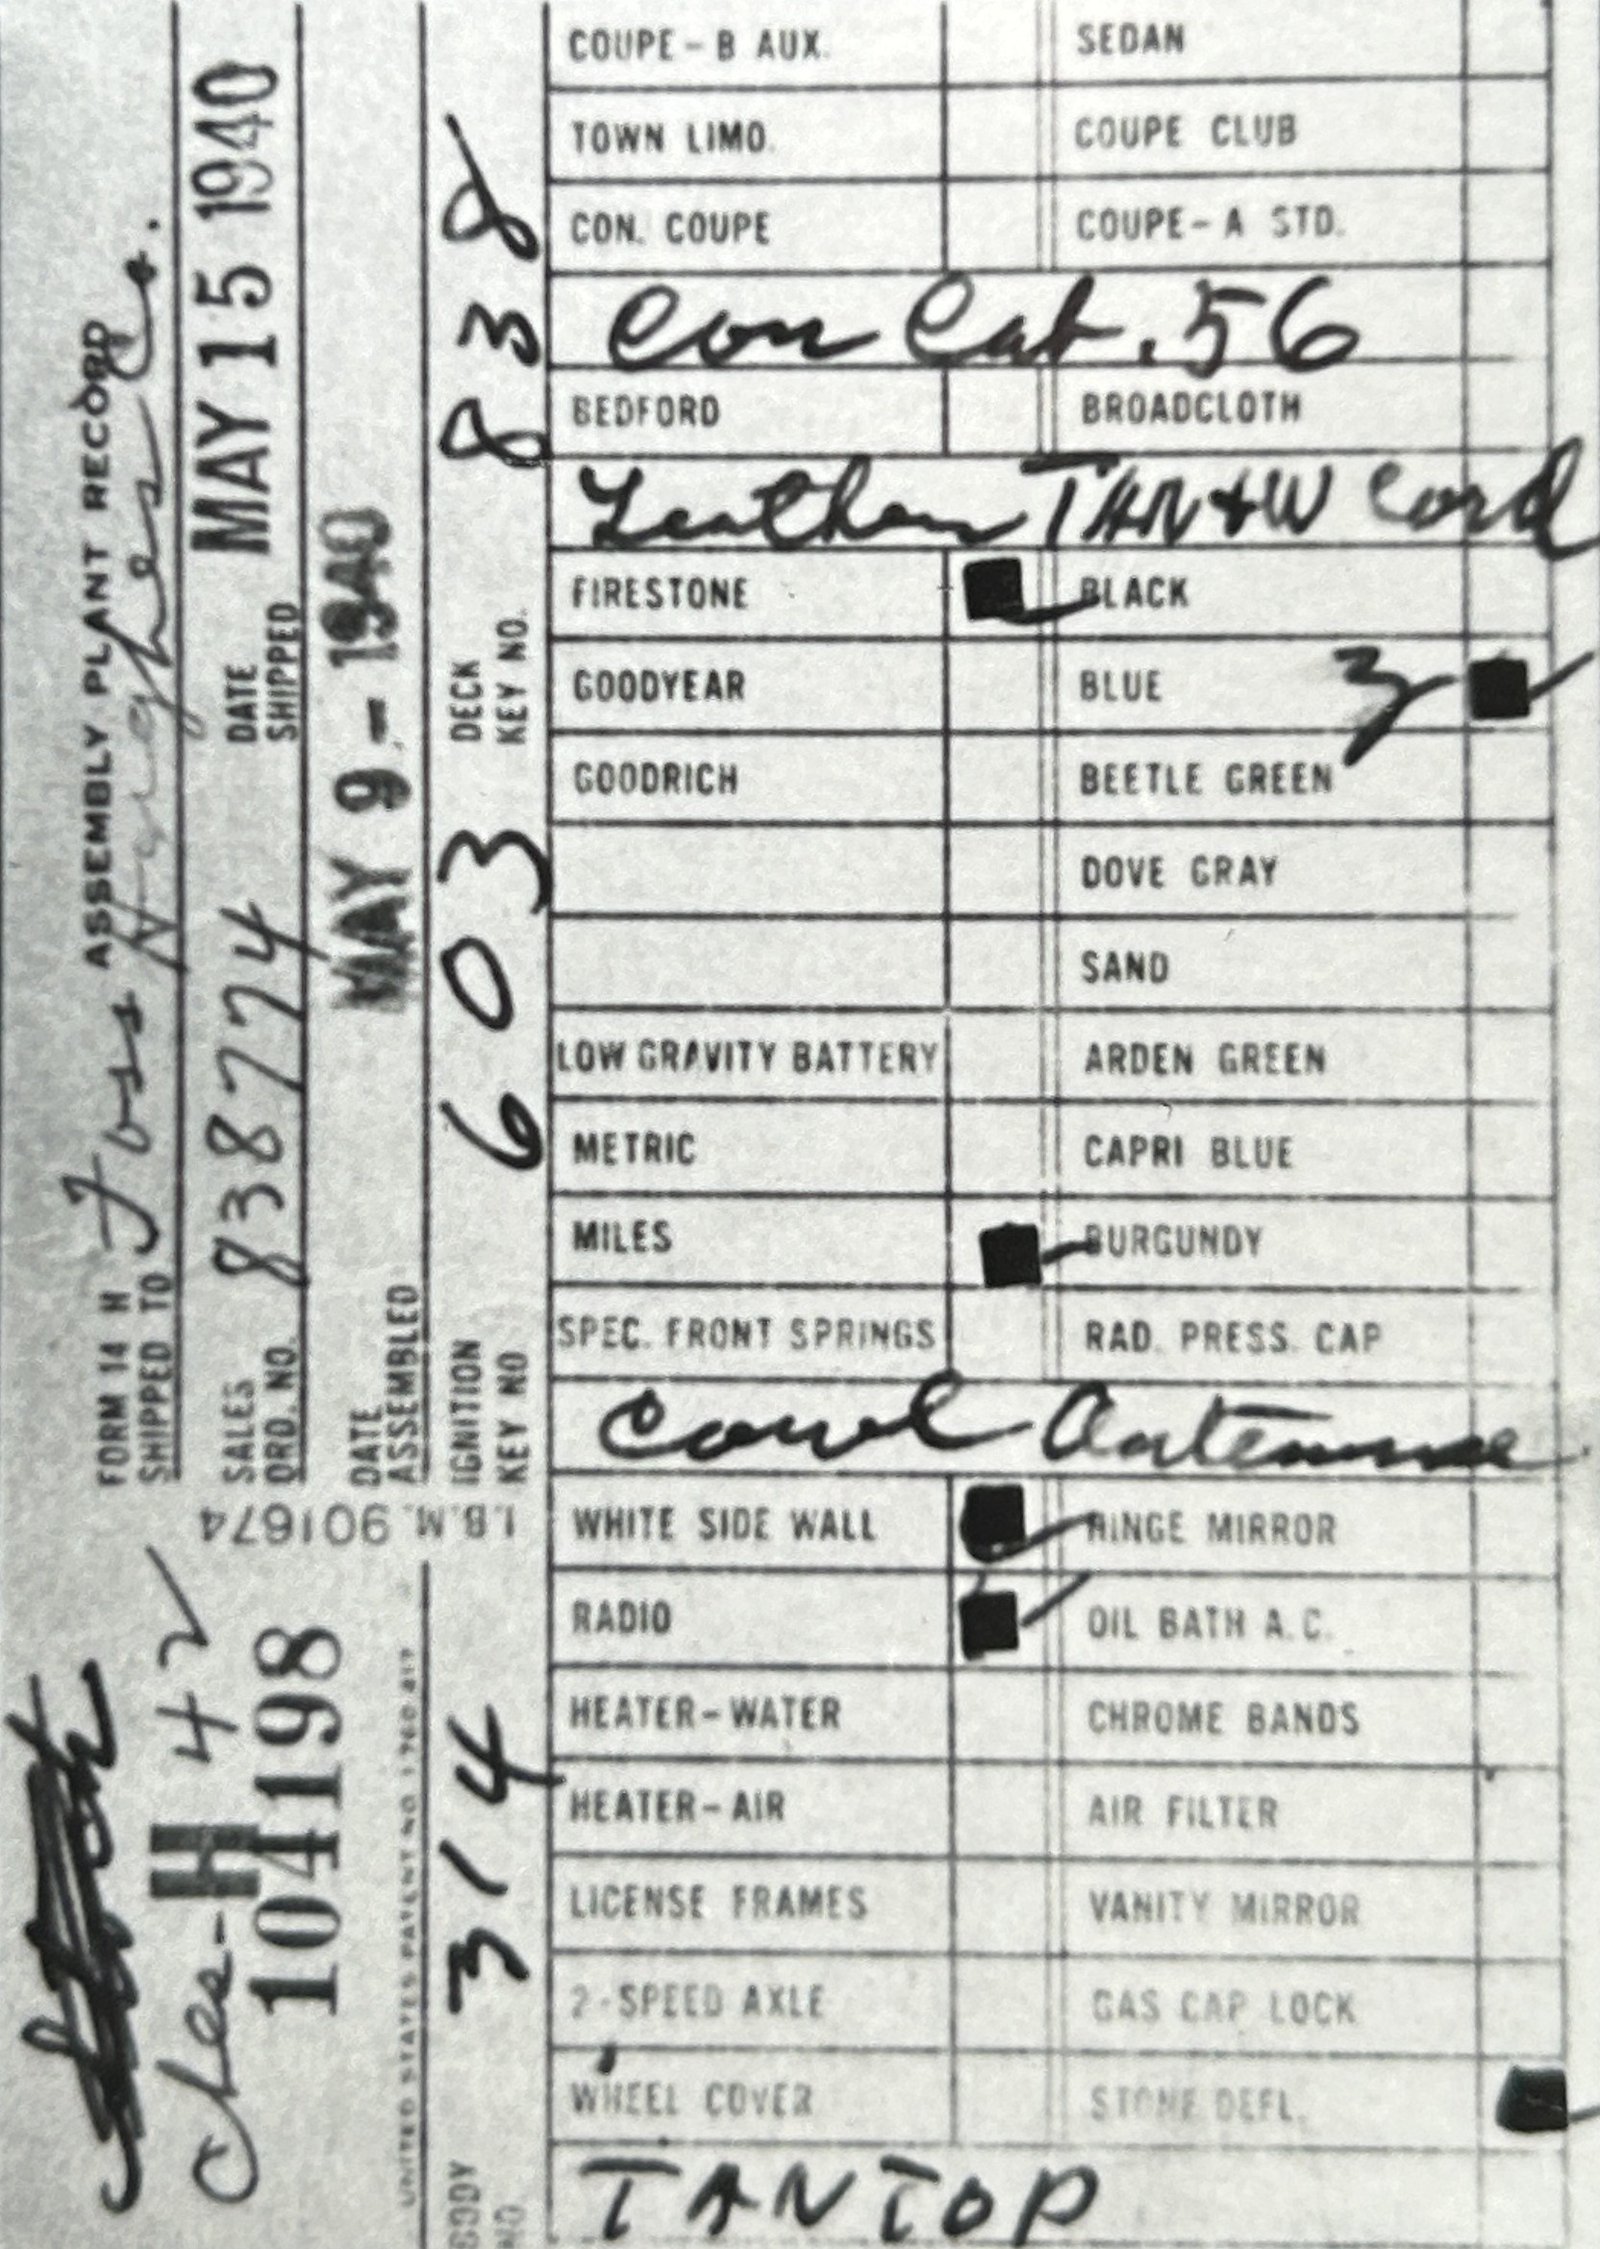 FORM 14 H ASSEMBLY PLANT RECORD
SHIPPED TO Jos Hughes Co.
SALES ORD. NO. 838774
DATE SHIPPED MAY 15 1940
DATE ASSEMBLED MAY 9 - 1940
IGNITION KEY NO 603
DECK KEY NO. 838
H 42
H
104198
I.B.M. 901674
UNITED STATES PATENT NO. 1 760 817
BODY NO. 314
COUPE - B AUX. SEDAN
TOWN LIMO. COUPE CLUB
CON. COUPE COUPE - A STD.
Con Cab. 56
BEDFORD BROADCLOTH
Leather TAN + W Cord
FIRESTONE BLACK
GOODYEAR BLUE 3
GOODRICH BEETLE GREEN
DOVE GRAY
SAND
LOW GRAVITY BATTERY ARDEN GREEN
METRIC CAPRI BLUE
MILES BURGUNDY
SPEC. FRONT SPRINGS RAD. PRESS. CAP
Cowl Antenna
WHITE SIDE WALL HINGE MIRROR
RADIO OIL BATH A.C.
HEATER - WATER CHROME BANDS
HEATER - AIR AIR FILTER
LICENSE FRAMES VANITY MIRROR
2 - SPEED AXLE GAS CAP LOCK
WHEEL COVER STONE DEFL.
TAN TOP